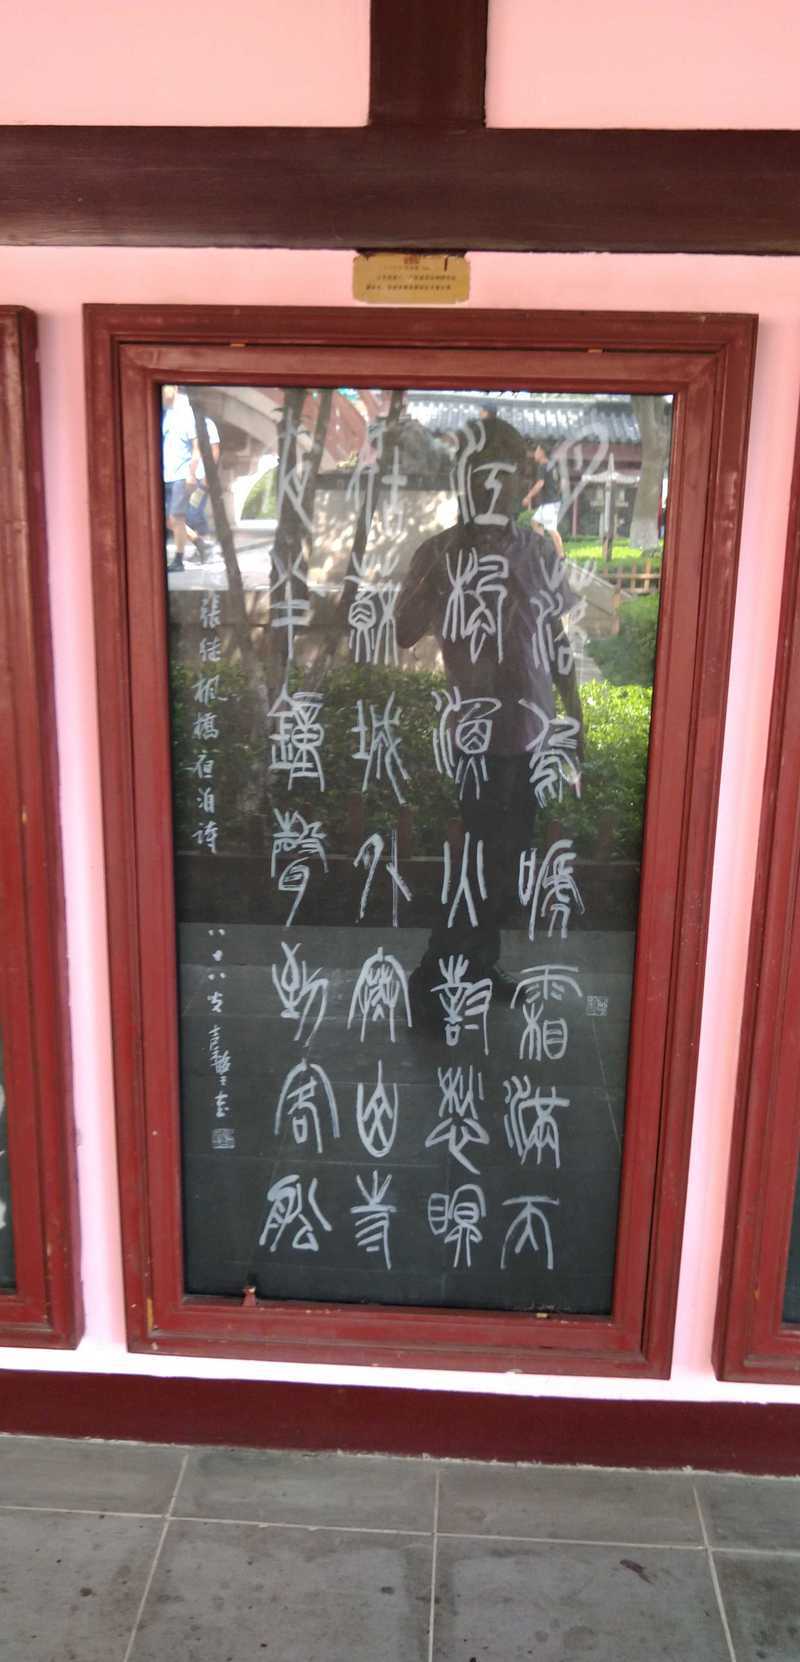 月落烏啼霜滿天
江楓漁火對愁眠
姑蘇城外寒山寺
夜半鐘聲到客船
張继楓橋夜泊诗
八十八叟